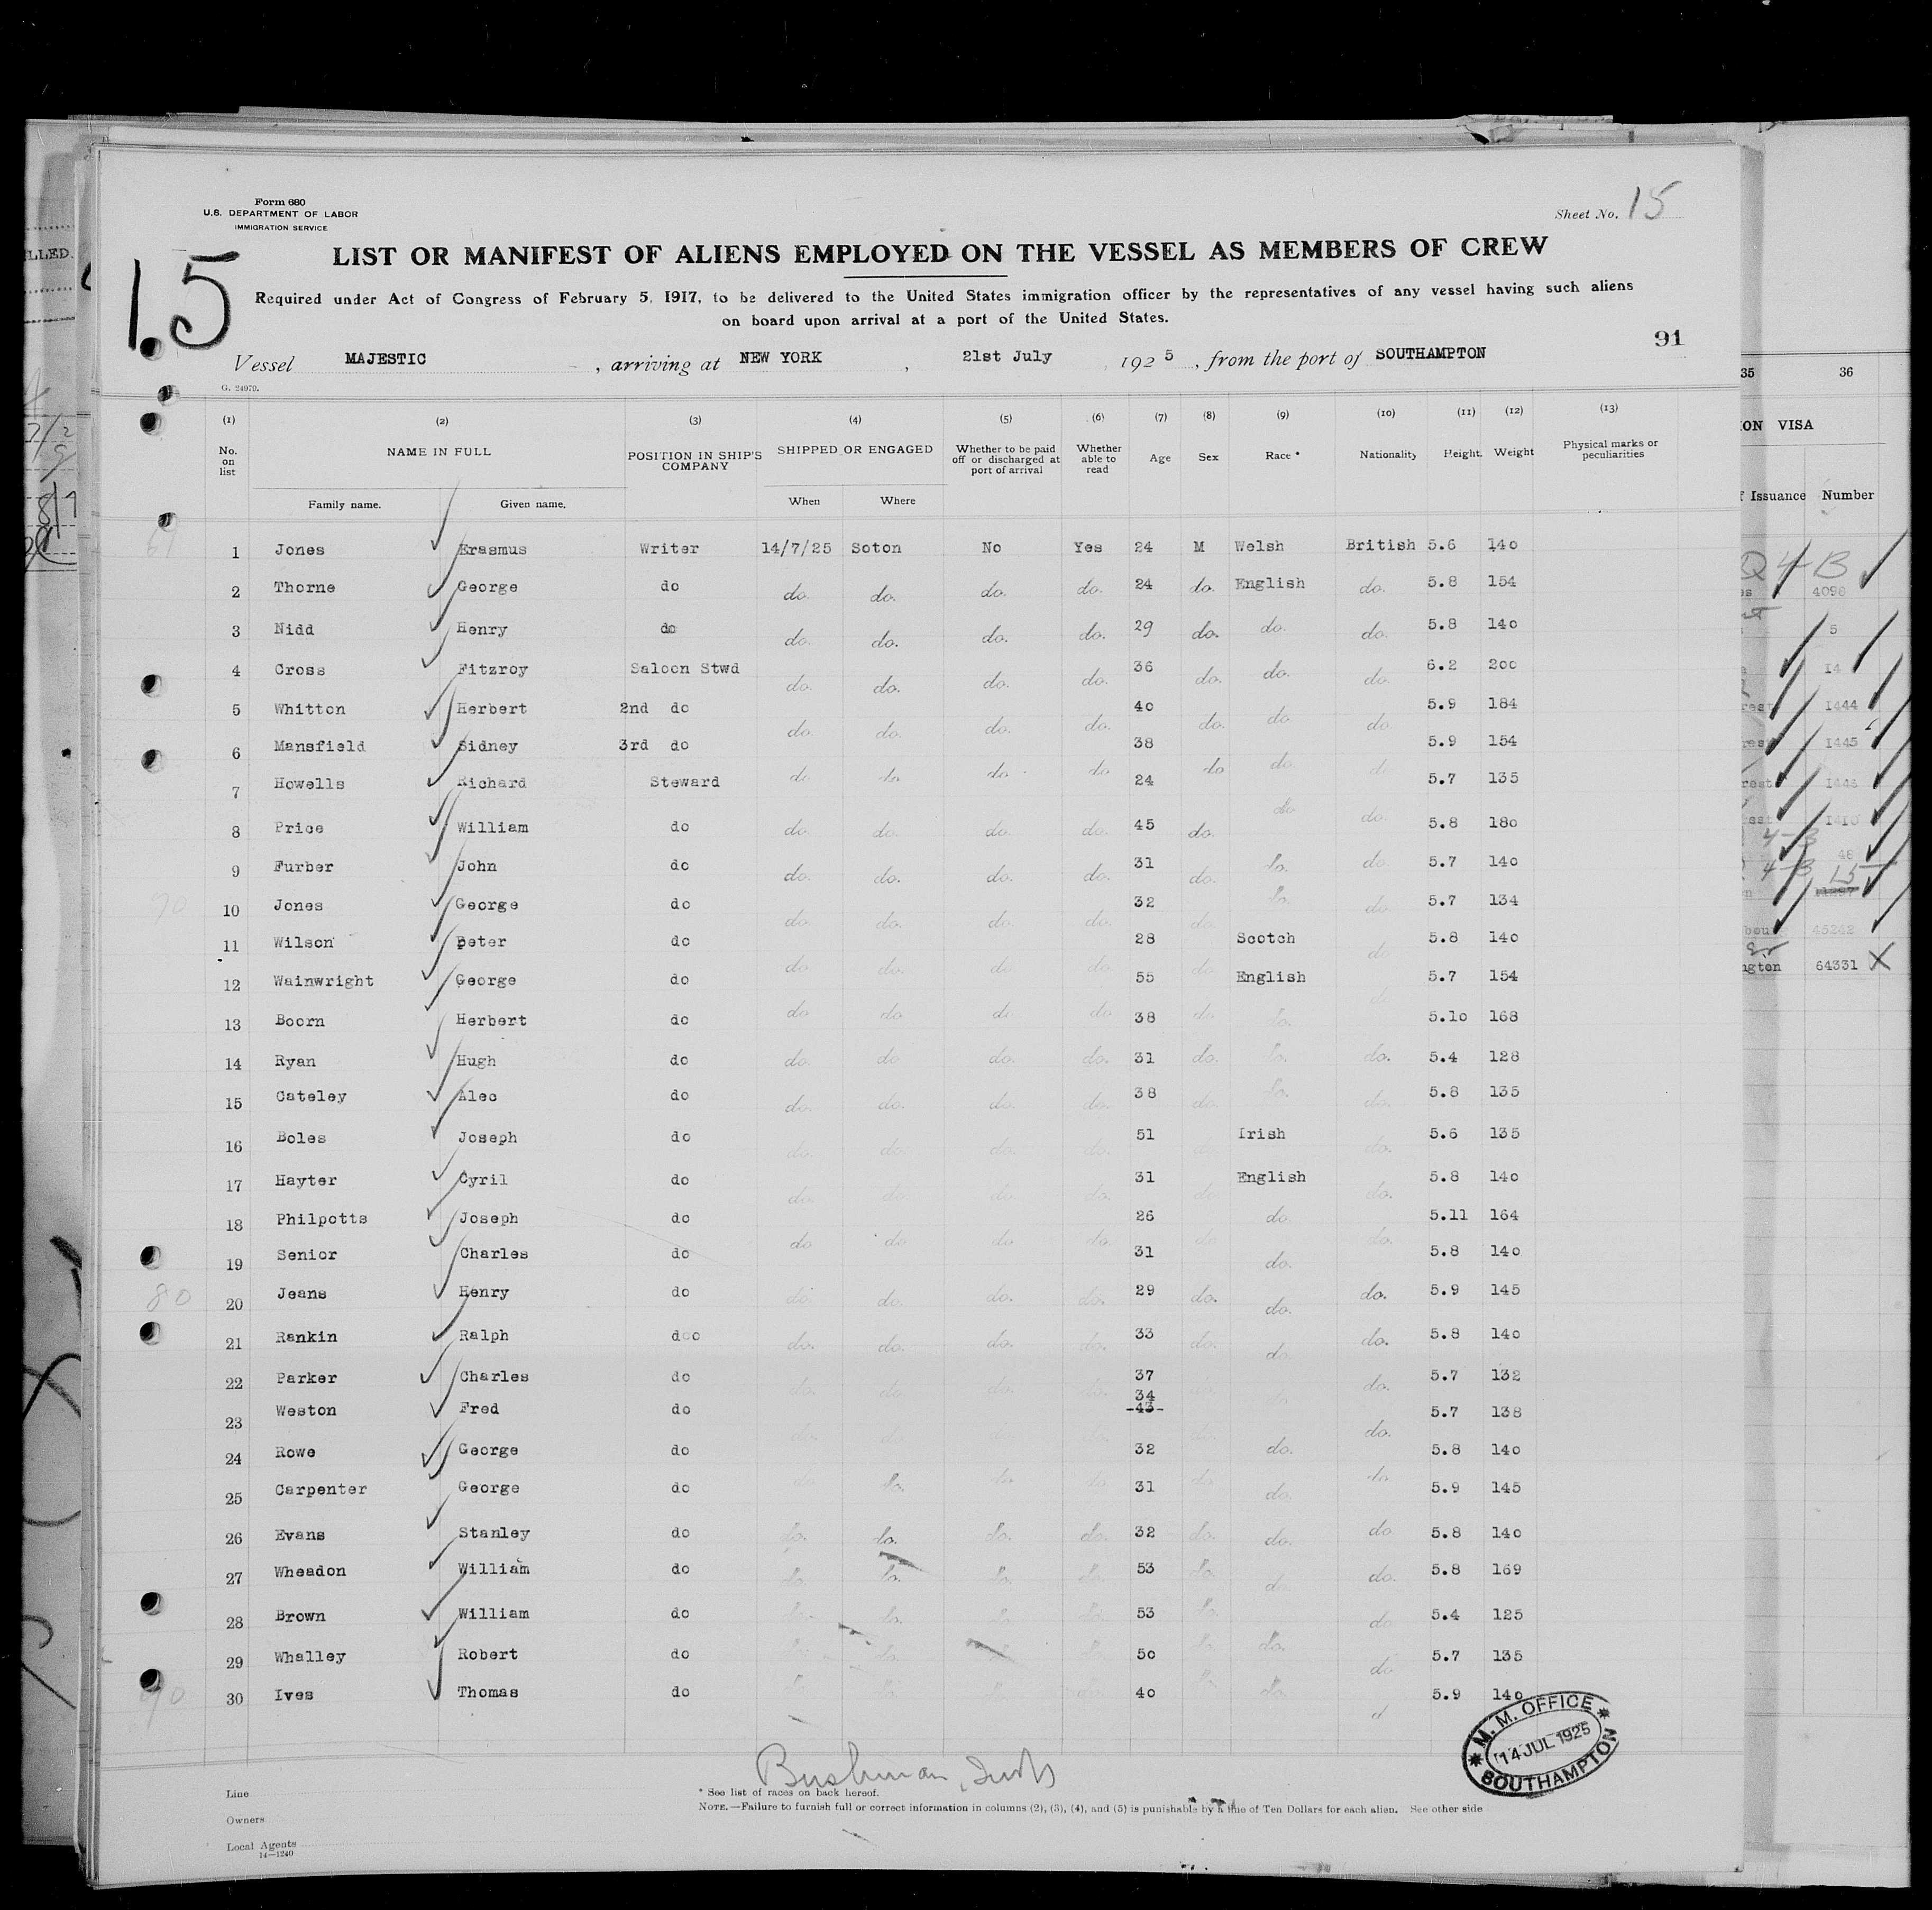 Form 680
U.S. DEPARTMENT OF LABOR
IMMIGRATION SERVICE
Sheet No. 15
15
LIST OR MANIFEST OF ALIENS EMPLOYED ON THE VESSEL AS MEMBERS OF CREW
Required under Act of Congress of February 5, 1917, to be delivered to the United States immigration officer by the representatives of any vessel having such aliens
on board upon arrival at a port of the United States.
91
Vessel MAJESTIC, arriving at NEW YORK, 21st July, 1925, from the port of SOUTHAMPTON
G. 24979.
(1) (2) (3) (4) (5) (6) (7) (8) (9) (10) (11) (12) (13)
No. on list NAME IN FULL POSITION IN SHIP'S COMPANY SHIPPED OR ENGAGED Whether to be paid off or discharged at port of arrival Whether able to read Age Sex Race * Nationality Height Weight Physical marks or peculiarities
Family name. Given name. When Where
1 Jones Erasmus Writer 14/7/25 Soton No Yes 24 M Welsh British 5.6 140
2 Thorne George do do. do. do. do. 24 do. English do. 5.8 154
3 Nidd Henry do do. do. do. do. 29 do. do. do. 5.8 140
4 Cross Fitzroy Saloon Stwd do. do. do. do. 36 do. do. do. 6.2 200
5 Whitton Herbert 2nd do do. do. do. do. 40 do. do do. 5.9 184
6 Mansfield Sidney 3rd do do do do do 38 do do. do 5.9 154
7 Howells Richard Steward 24 do 5.7 135
8 Price William do do. do. do. do. 45 do. do. 5.8 180
9 Furber John do do. do. do. do. 31 do. do. do. 5.7 140
10 Jones George do do. do. do. do. 32 do. do. do. 5.7 134
11 Wilson Peter do do do. do do 28 do Scotch do 5.8 140
12 Wainwright George do do do do do 55 do English do 5.7 154
13 Boorn Herbert do 38 do. 5.10 168
14 Ryan Hugh do do. do. do. do. 31 do. do. do. 5.4 128
15 Cateley Alec do do. do. do. do. 38 do. do. do. 5.8 135
16 Boles Joseph do do. do. do. do. 51 do Irish do. 5.6 135
17 Hayter Cyril do do. do. do. do. 31 do English do. 5.8 140
18 Philpotts Joseph do do do do. do. 26 do do. do. 5.11 164
19 Senior Charles do 31 do. 5.8 140
20 Jeans Henry do do. do. do. do. 29 do. do. do. 5.9 145
21 Rankin Ralph doo do. do. do. do. 33 do. do. do. 5.8 140
22 Parker Charles do do. do. do. do. 37 do. do. do. 5.7 132
23 Weston Fred do 34 43 do. 5.7 138
24 Rowe George do 32 do. do. 5.8 140
25 Carpenter George do 31 do. 5.9 145
26 Evans Stanley do do. do. do. do. 32 do. do. do 5.8 140
27 Wheadon William do do do. do. do. 53 do. do do. 5.8 169
28 Brown William do do. do. do. do. 53 do. do 5.4 125
29 Whalley Robert do 50 do. do 5.7 135
30 Ives Thomas do 40 do. 5.9 140
M. M. OFFICE
14 JUL 1925
SOUTHAMPTON
Line
* See list of races on back hereof.
NOTE.—Failure to furnish full or correct information in columns (2), (3), (4), and (5) is punishable by a fine of Ten Dollars for each alien. See other side
Owners
Local Agents
14—1240
70
80
90
35 36
VISA
Issuance Number
4096
5
14
1444
1445
48
15
45262
64331